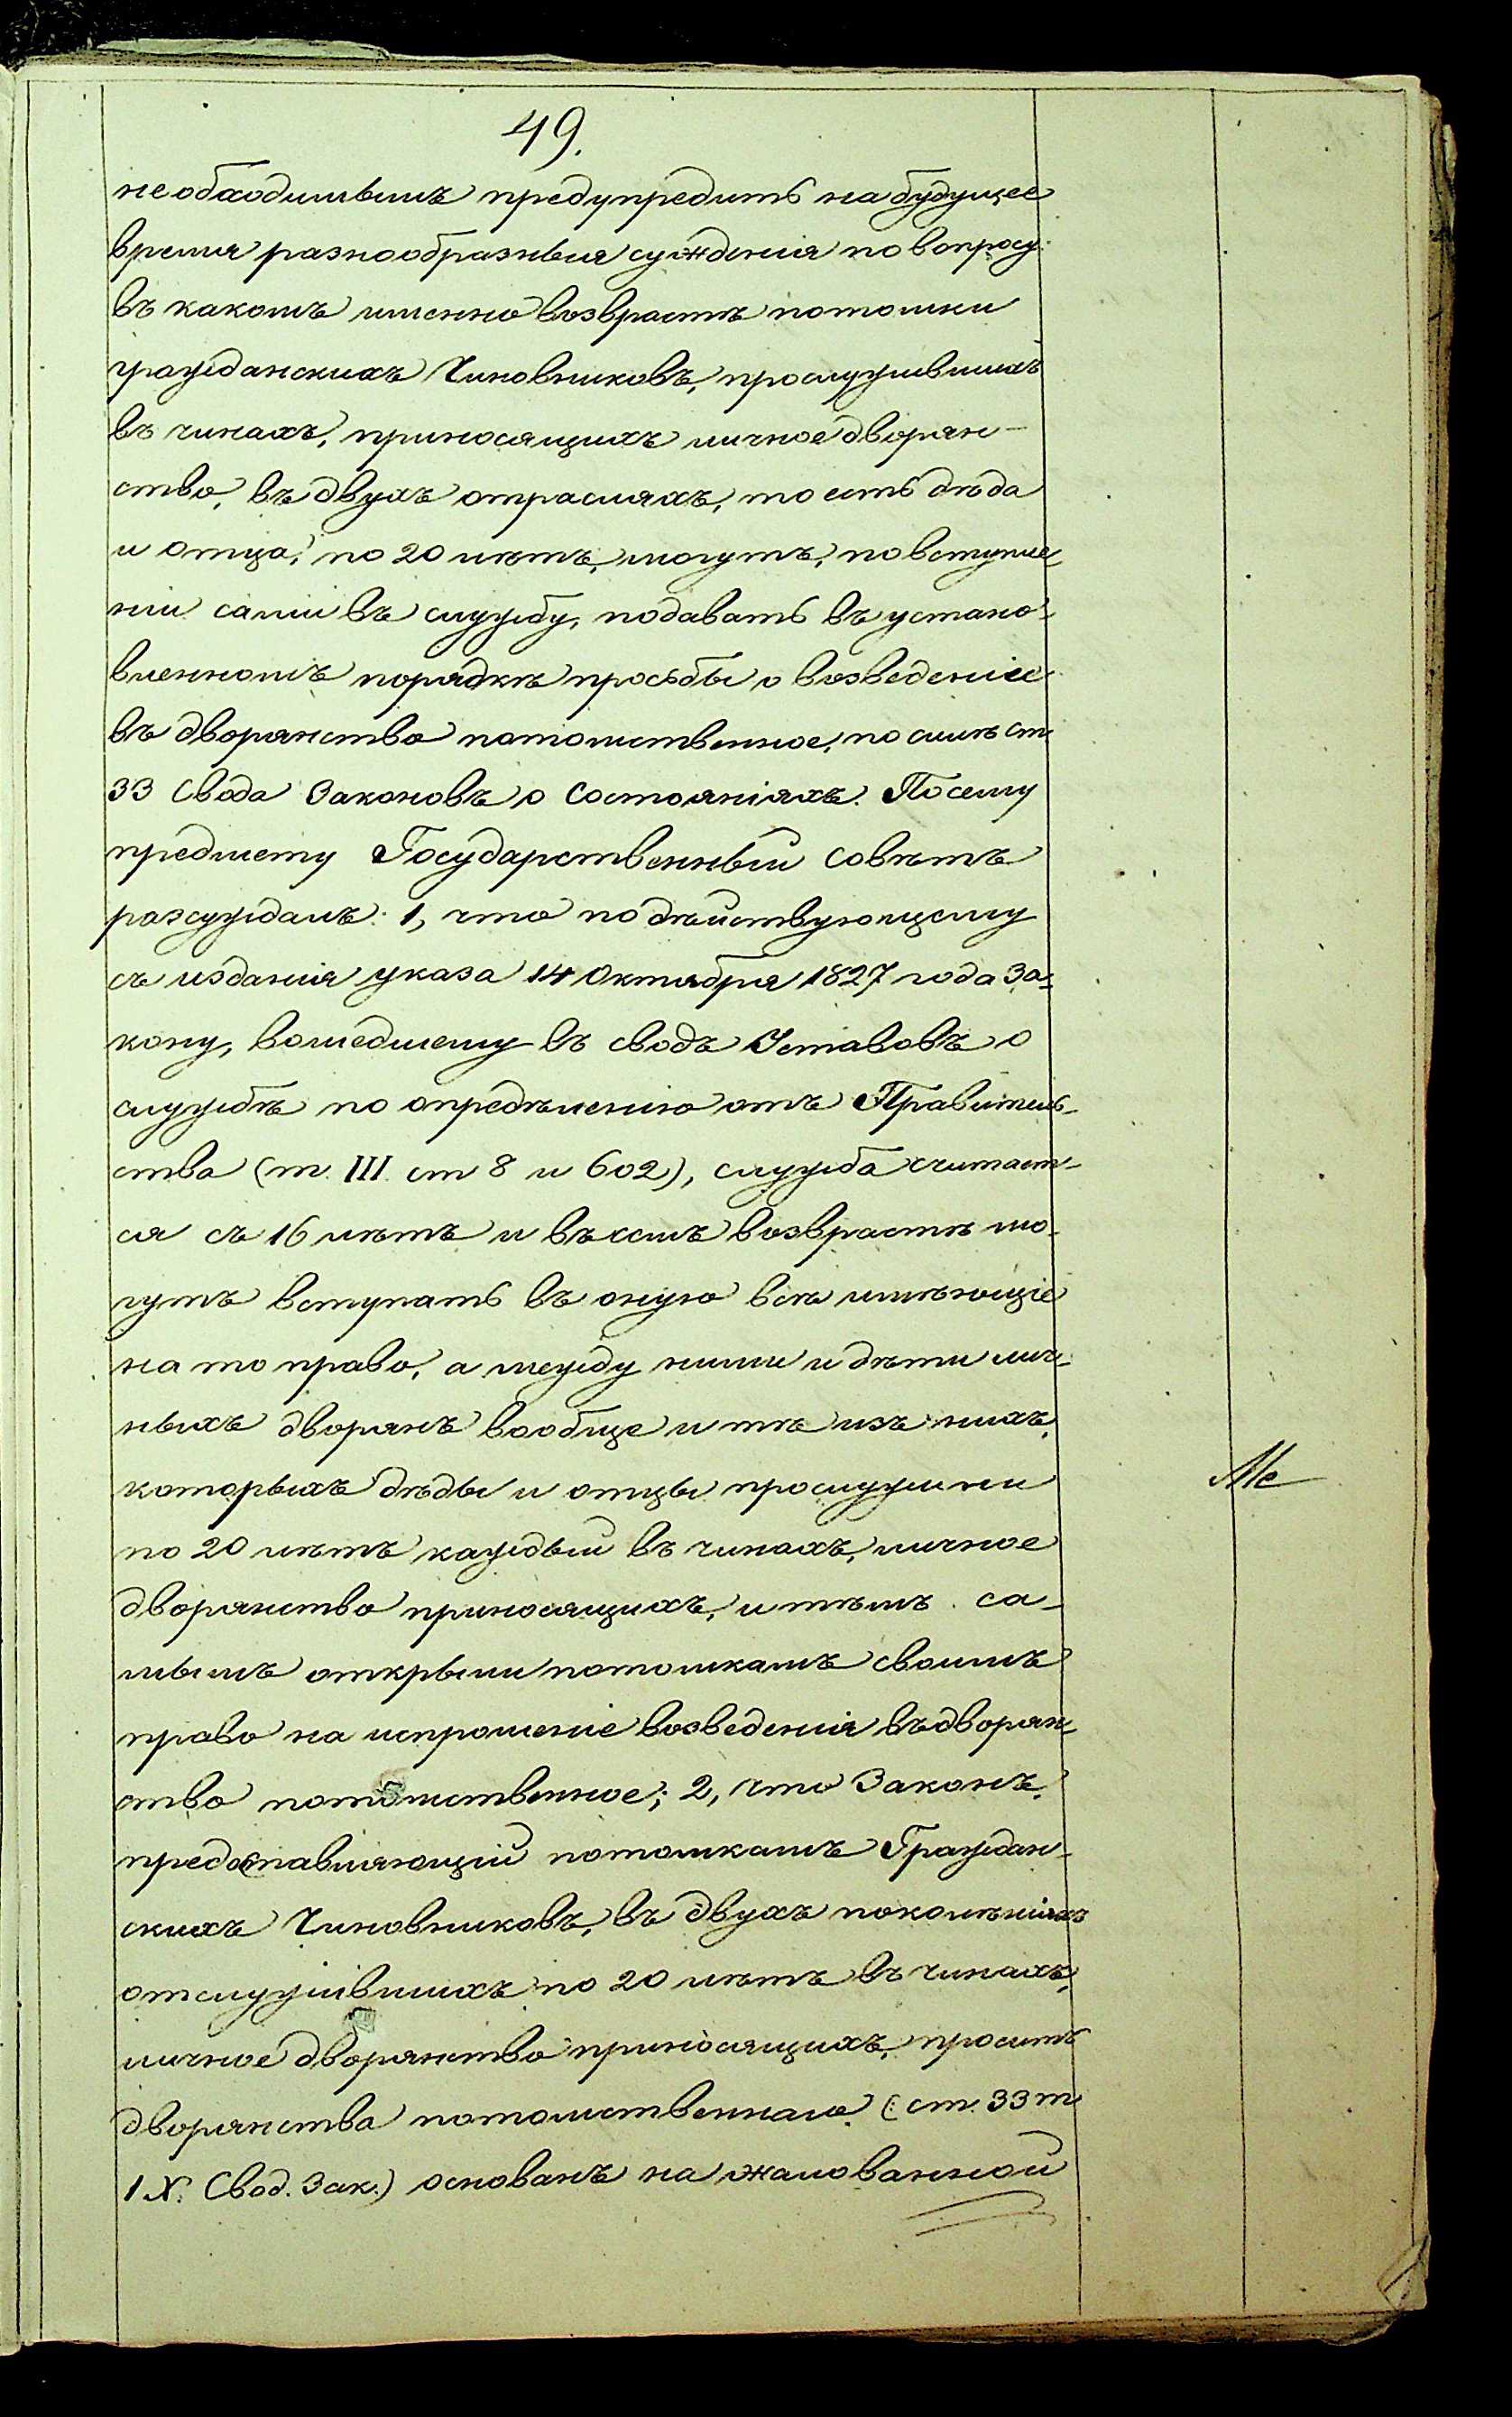 49.
необходимымъ предупредить на будущее
время разнообразныя сужденія по вопросу:
въ какомъ именно возврастѣ потомки
гражданскихъ Чиновниковъ, прослужившихъ
въ чинахъ, приносящихъ личное дворян-
ство, въ двухъ отрасляхъ, то есть дѣда
и отца, по 20 лѣтъ, могутъ, по вступле-
ніи сами въ службу, подавать въ устано-
вленномъ порядкѣ просьбы о возведеніе
въ дворянство потомственное, по силѣ ст
33 Свода Законовъ о Состояніяхъ. По сему
предмету Государственный Совѣтъ
разсуждалъ: 1, что по дѣйствующему
съ изданія указа 14 Октября 1827 года За-
кону, вошедшему въ сводъ Уставовъ о
службѣ по опредѣленію отъ Правитель-
ства (т. III. ст 8 и 602), служба считает-
ся съ 16 лѣтъ и въ семъ возврастѣ мо-
гутъ вступать въ оную всѣ имѣющіе
на то право, а между ними и дѣти лич-
ныхъ дворянъ вообще и тѣ изъ нихъ,
которыхъ дѣды и отцы прослужили
по 20 лѣтъ каждый въ чинахъ, личное
дворянство приносящихъ, и тѣмъ са-
мымъ открыли потомкамъ своимъ
право на испрошеніе возведенія въ дворян-
ство потомственное; 2, что Законъ,
предоставляющій потомкамъ Граждан-
скихъ Чиновниковъ, въ двухъ поколѣніяхъ
отслужившихъ по 20 лѣтъ въ чинахъ,
личное дворянство приносящихъ, просить
дворянства потомственнаго (: ст. 33 т
IX. Свод. Зак.) основанъ на жалованной